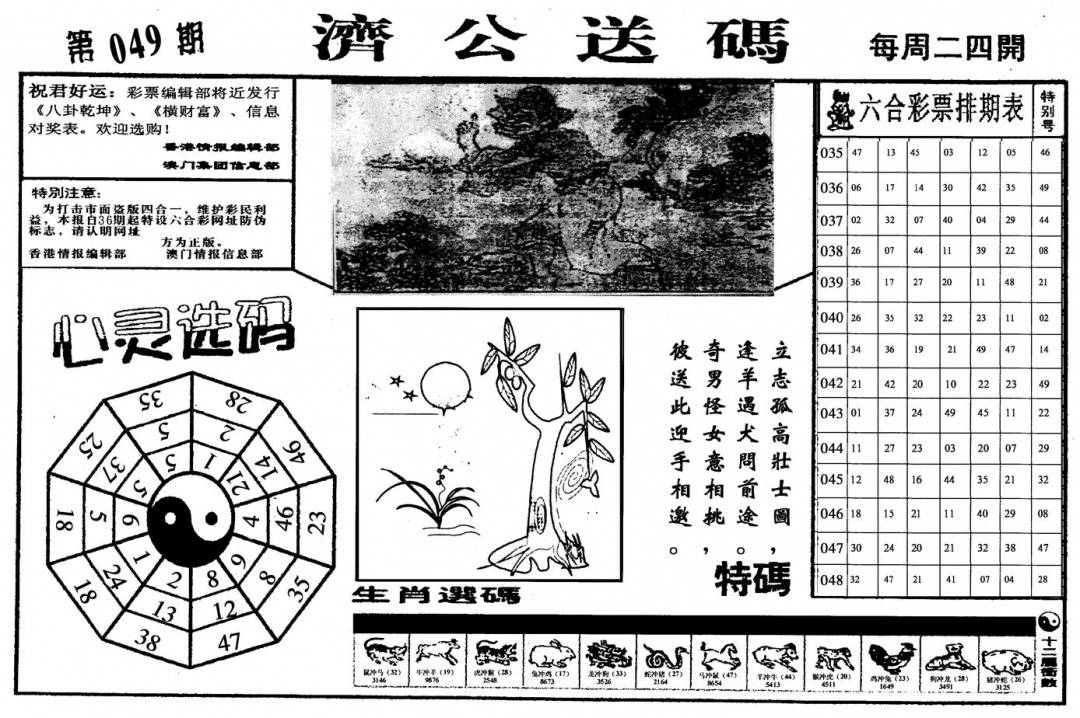 第049期
濟公送碼
每周二四開
祝君好运：彩票编辑部将近发行
《八卦乾坤》、《横财富》、信息
对奖表。欢迎选购！
香港情报编辑部
澳门集团信息部
特别注意：
为打击市面盗版四合一，维护彩民利
益，本报自36期起特设六合彩网址防伪
标志，请认明网址
方为正版。
香港情报编辑部 澳门情报信息部
心灵选码
35 28
25 5 2 46
37 5 1 14
5 21
18 5 6 4 46 23
1 9
24 2 8 8
18 13 12 35
38 47
立志孤高壯士圖，
逢羊遇犬問前途。
奇男怪女意相挑，
彼送此迎手相邀。
特碼
生肖選碼
六合彩票排期表 特别号
035 47 13 45 03 12 05 46
036 06 17 14 30 42 35 49
037 02 32 07 40 04 29 44
038 26 07 44 11 39 22 08
039 36 17 27 20 11 48 21
040 26 35 32 22 23 11 02
041 34 36 19 21 49 47 14
042 21 42 20 10 22 23 49
043 01 37 24 49 45 11 22
044 11 27 23 03 20 07 29
045 12 48 16 44 35 21 32
046 18 15 21 11 40 29 08
047 30 24 20 21 32 38 47
048 32 47 21 41 07 04 28
鼠冲马（32） 牛冲羊（19） 虎冲猴（28） 兔冲鸡（17） 龙冲狗（33） 蛇冲猪（27） 马冲鼠（47） 羊冲牛（44） 猴冲虎（20） 鸡冲兔（23） 狗冲龙（28） 猪冲蛇（26）
3146 9876 2548 8673 3526 2164 8654 5413 4511 1649 3491 3125
十二屬衝數